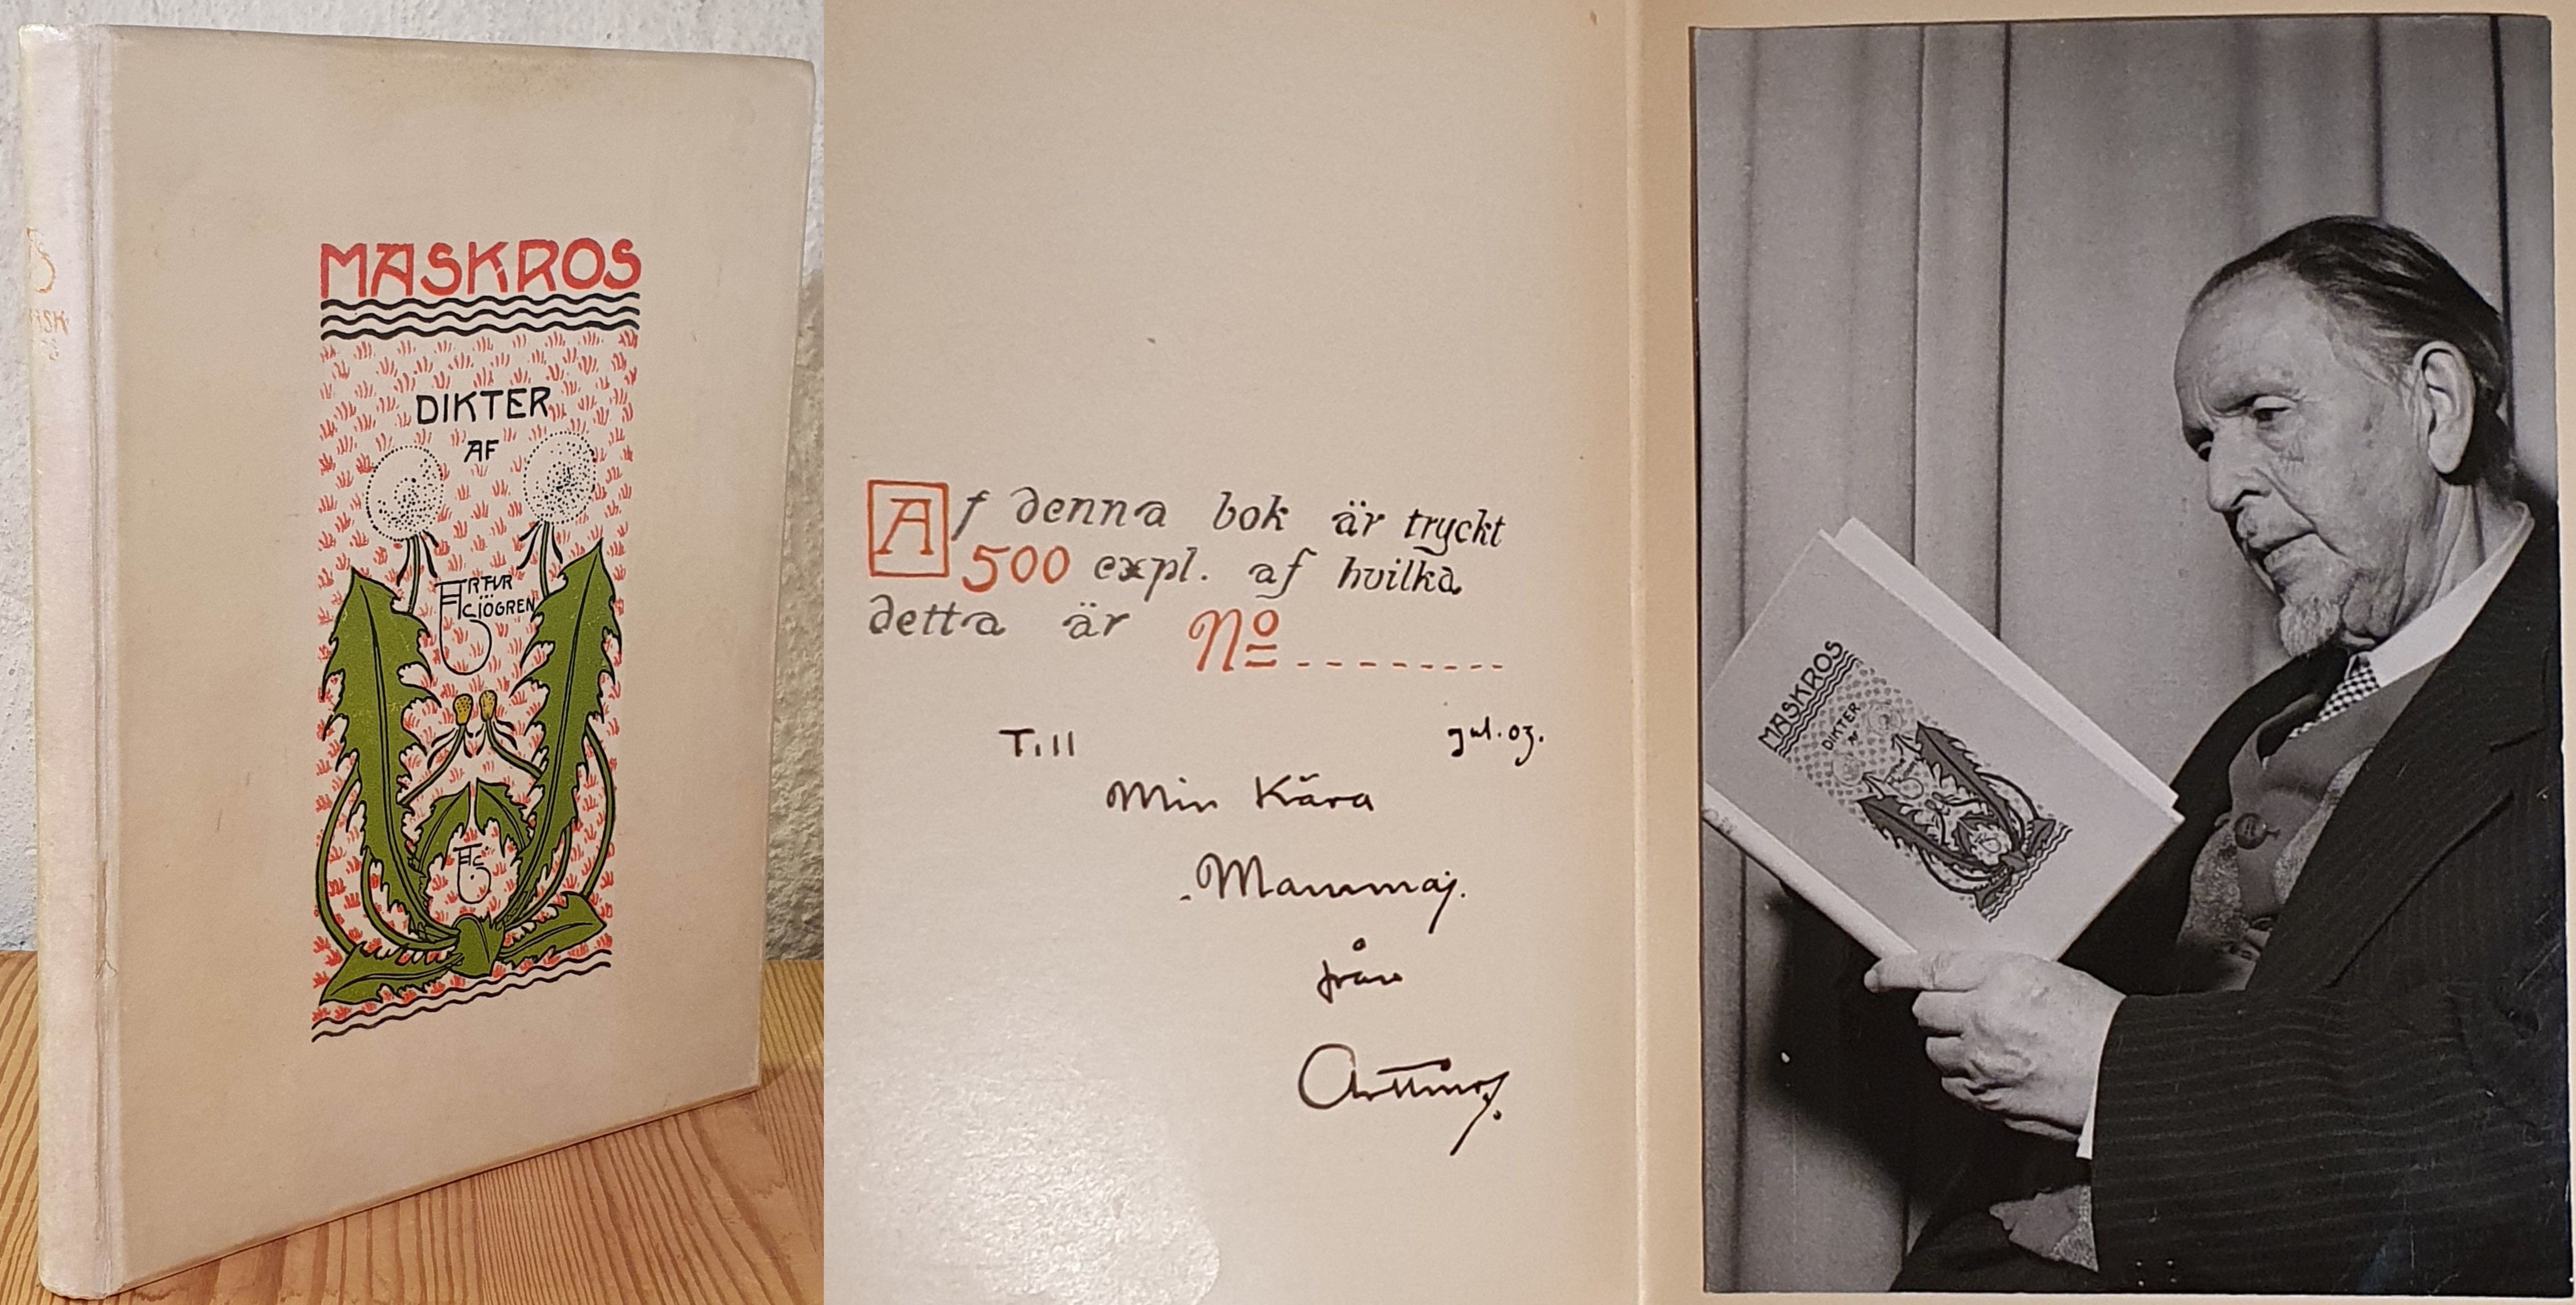 MASKROS
DIKTER
AF
ARTUR
SJÖGREN
AS
Af denna bok är tryckt
500 expl. af hvilka
detta är No
Till
jul. 03.
Min Kära
Mamma
från
MASKROS
DIKTER
AF